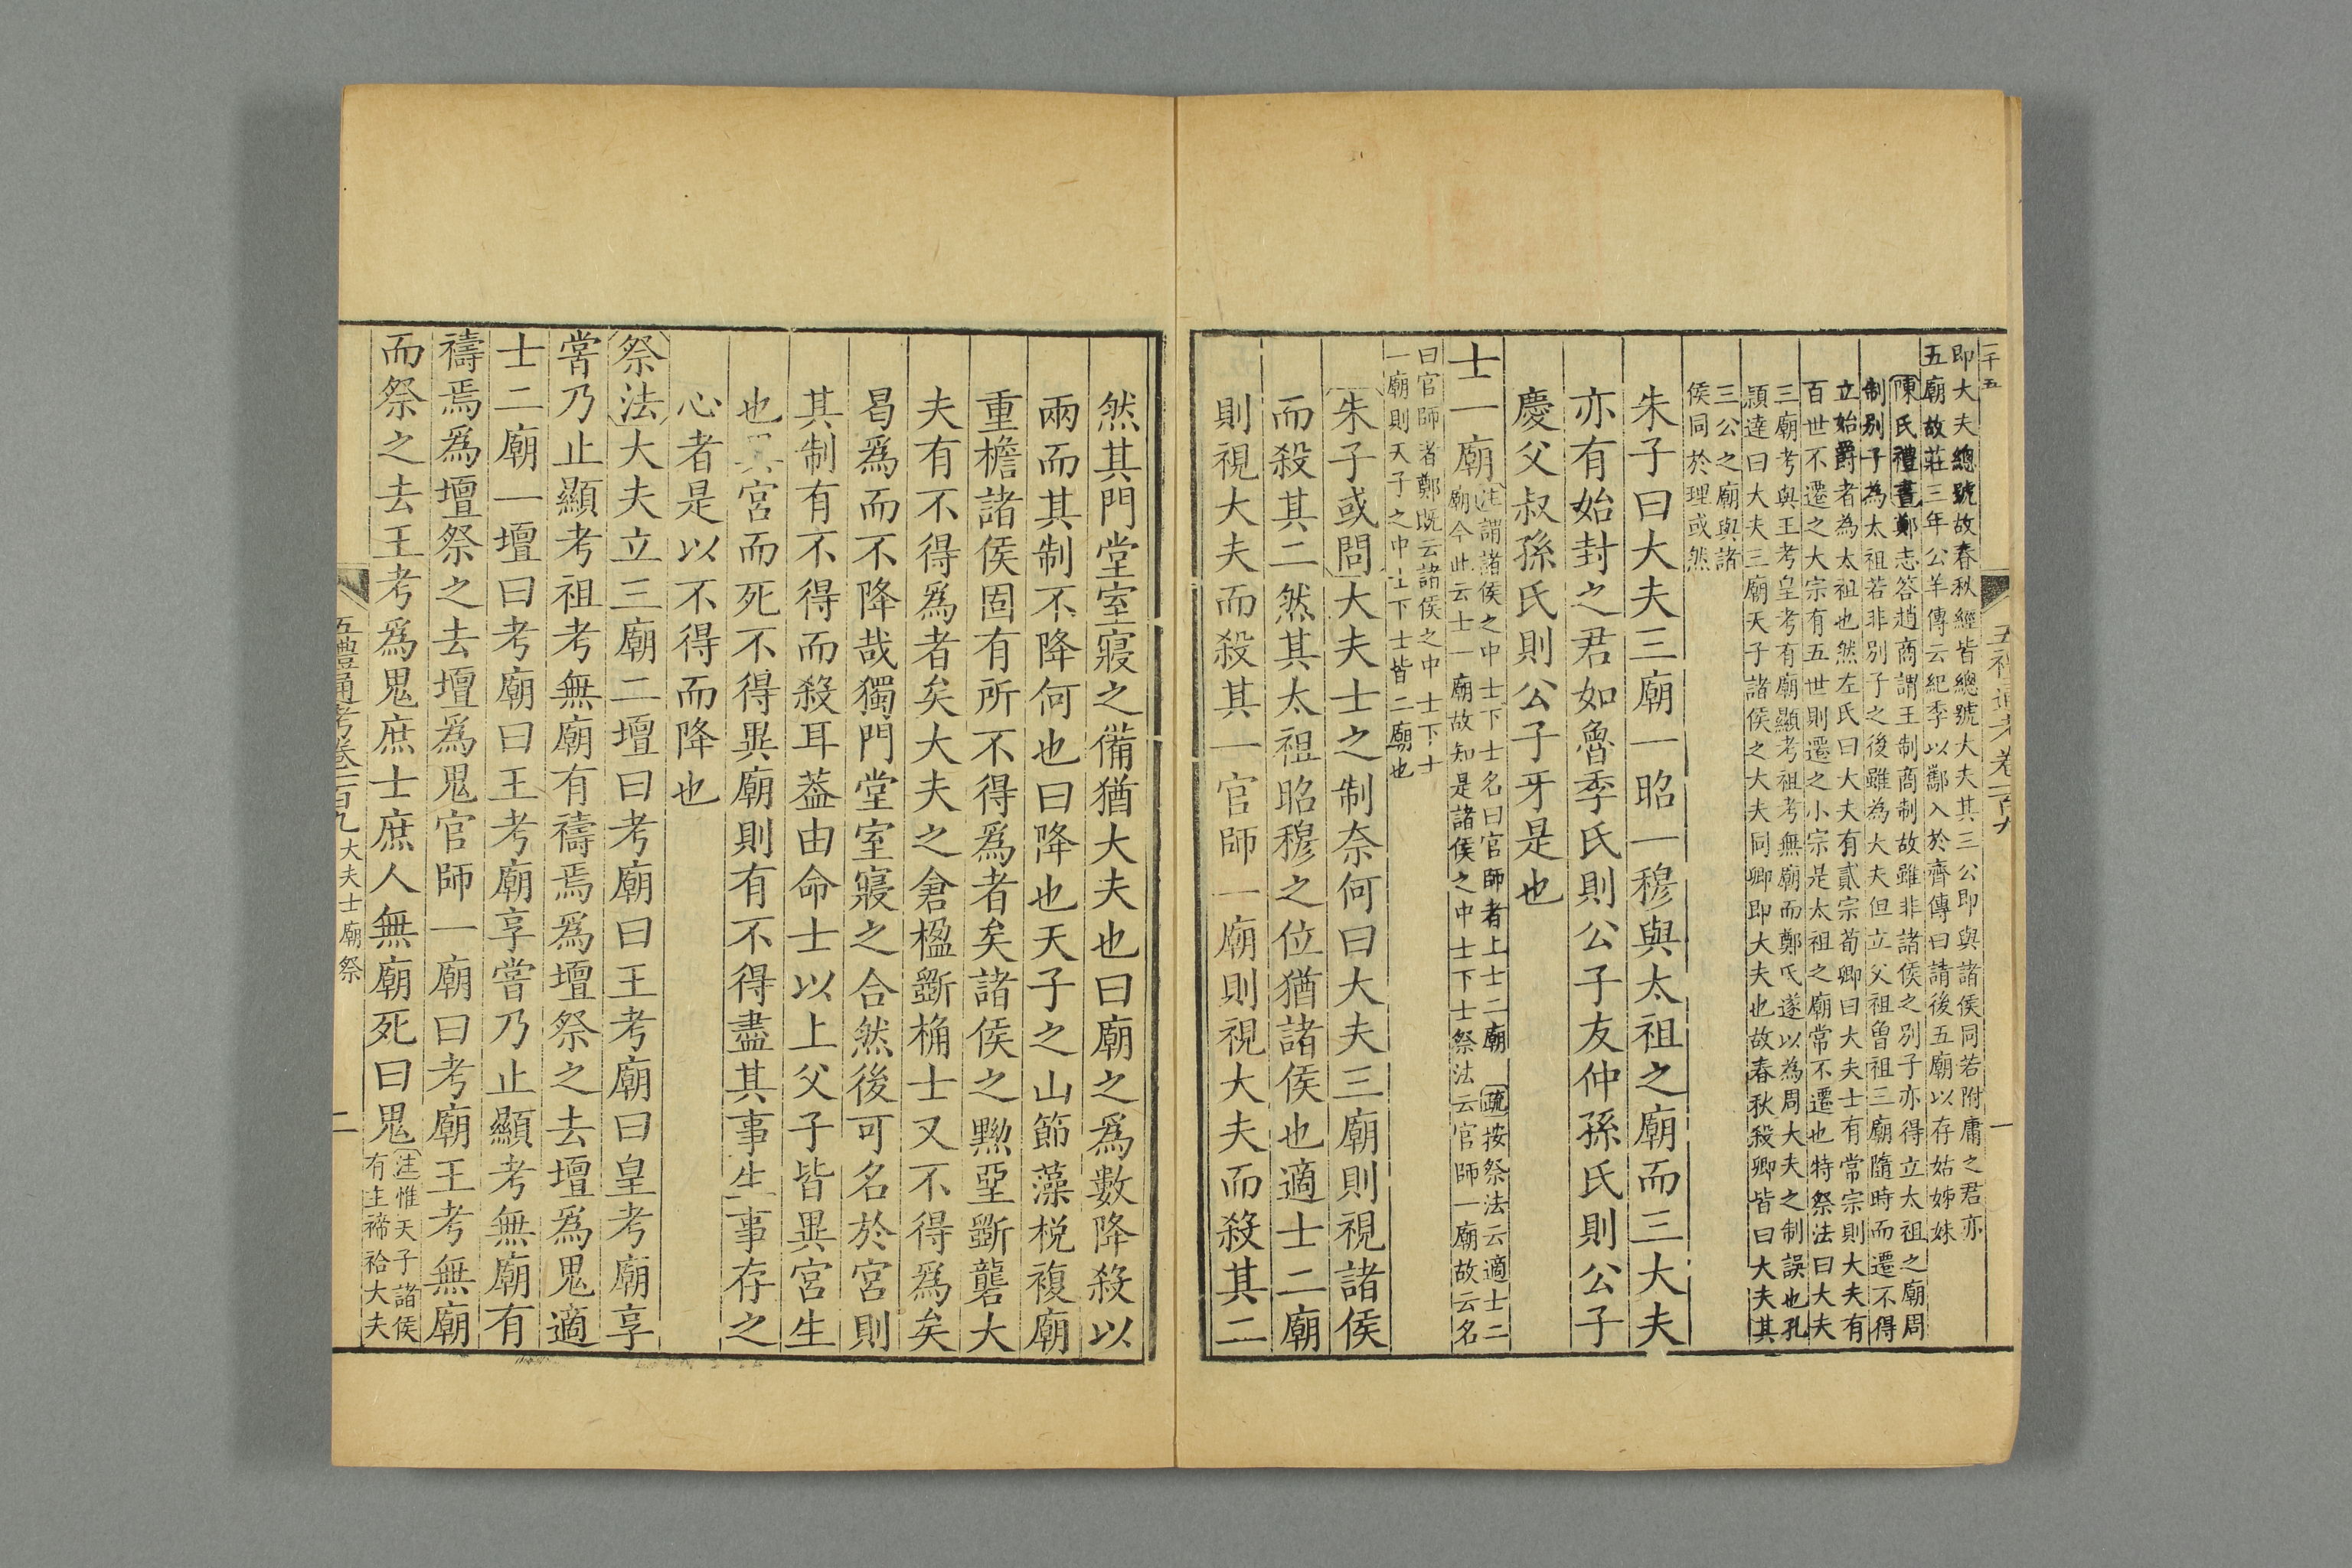 二千五
五禮通考卷一百九
一
即大夫總號故春秋經皆總號大夫其三公即與諸侯同若附庸之君亦
五廟故莊三年公羊傳云紀季以酅入於齊傳曰請後五廟以存姑姊妹
陳氏禮書鄭志答趙商謂王制商制故雖非諸侯之別子亦得立太祖之廟周
制別子為太祖若非別子之後雖為大夫但立父祖曾祖三廟隨時而遷不得
立始爵者為太祖也然左氏曰大夫有貳宗荀卿曰大夫士有常宗則大夫有
百世不遷之大宗有五世則遷之小宗是太祖之廟常不遷也特祭法曰大夫
三廟考與王考皇考有廟顯考祖考無廟而鄭氏遂以為周大夫之制誤也孔
穎達曰大夫三廟天子諸侯之大夫同卿即大夫也故春秋殺卿皆曰大夫其
三公之廟與諸
侯同於理或然
朱子曰大夫三廟一昭一穆與太祖之廟而三大夫
亦有始封之君如魯季氏則公子友仲孫氏則公子
慶父叔孫氏則公子牙是也
士一廟
注謂諸侯之中士下士名曰官師者上士二廟 疏按祭法云適士二
廟今此云士一廟故知是諸侯之中士下士祭法云官師一廟故云名
曰官師者鄭旣云諸侯之中士下士
一廟則天子之中士下士皆二廟也
朱子或問大夫士之制奈何曰大夫三廟則視諸侯
而殺其二然其太祖昭穆之位猶諸侯也適士二廟
則視大夫而殺其一官師一廟則視大夫而殺其二
然其門堂室寢之備猶大夫也曰廟之爲數降殺以
兩而其制不降何也曰降也天子之山節藻梲複廟
重檐諸侯固有所不得爲者矣諸侯之黝堊斲礱大
夫有不得爲者矣大夫之倉楹斲桷士又不得爲矣
曷爲而不降哉獨門堂室寢之合然後可名於宮則
其制有不得而殺耳葢由命士以上父子皆異宮生
也異宮而死不得異廟則有不得盡其事生事存之
心者是以不得而降也
祭法大夫立三廟二壇曰考廟曰王考廟曰皇考廟享
嘗乃止顯考祖考無廟有禱焉爲壇祭之去壇爲鬼適
士二廟一壇曰考廟曰王考廟享嘗乃止顯考無廟有
禱焉爲壇祭之去壇爲鬼官師一廟曰考廟王考無廟
而祭之去王考爲鬼庶士庶人無廟死曰鬼
注惟天子諸侯
有主禘祫大夫
五禮通考卷一百九大夫士廟祭
二